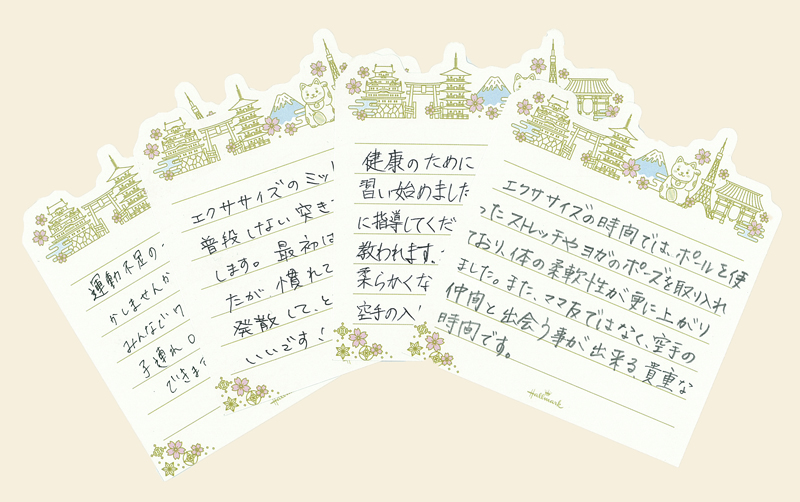 運動不足の
かしませんか
みんなでワ
子連れO
できます
エクササイズのミッ
普段しない突き
します。最初は
たが、慣れて
発散して、と
いいです！
健康のために
習い始めました
に指導してくだ
教われます。
柔らかくな
空手の入
エクササイズの時間では、ポールを使
ったストレッチやヨガのポーズを取り入れ
ており、体の柔軟性が更に上がり
ました。また、ママ友ではなく、空手の
仲間と出会う事が出来る、貴重な
時間です。
Hallmark